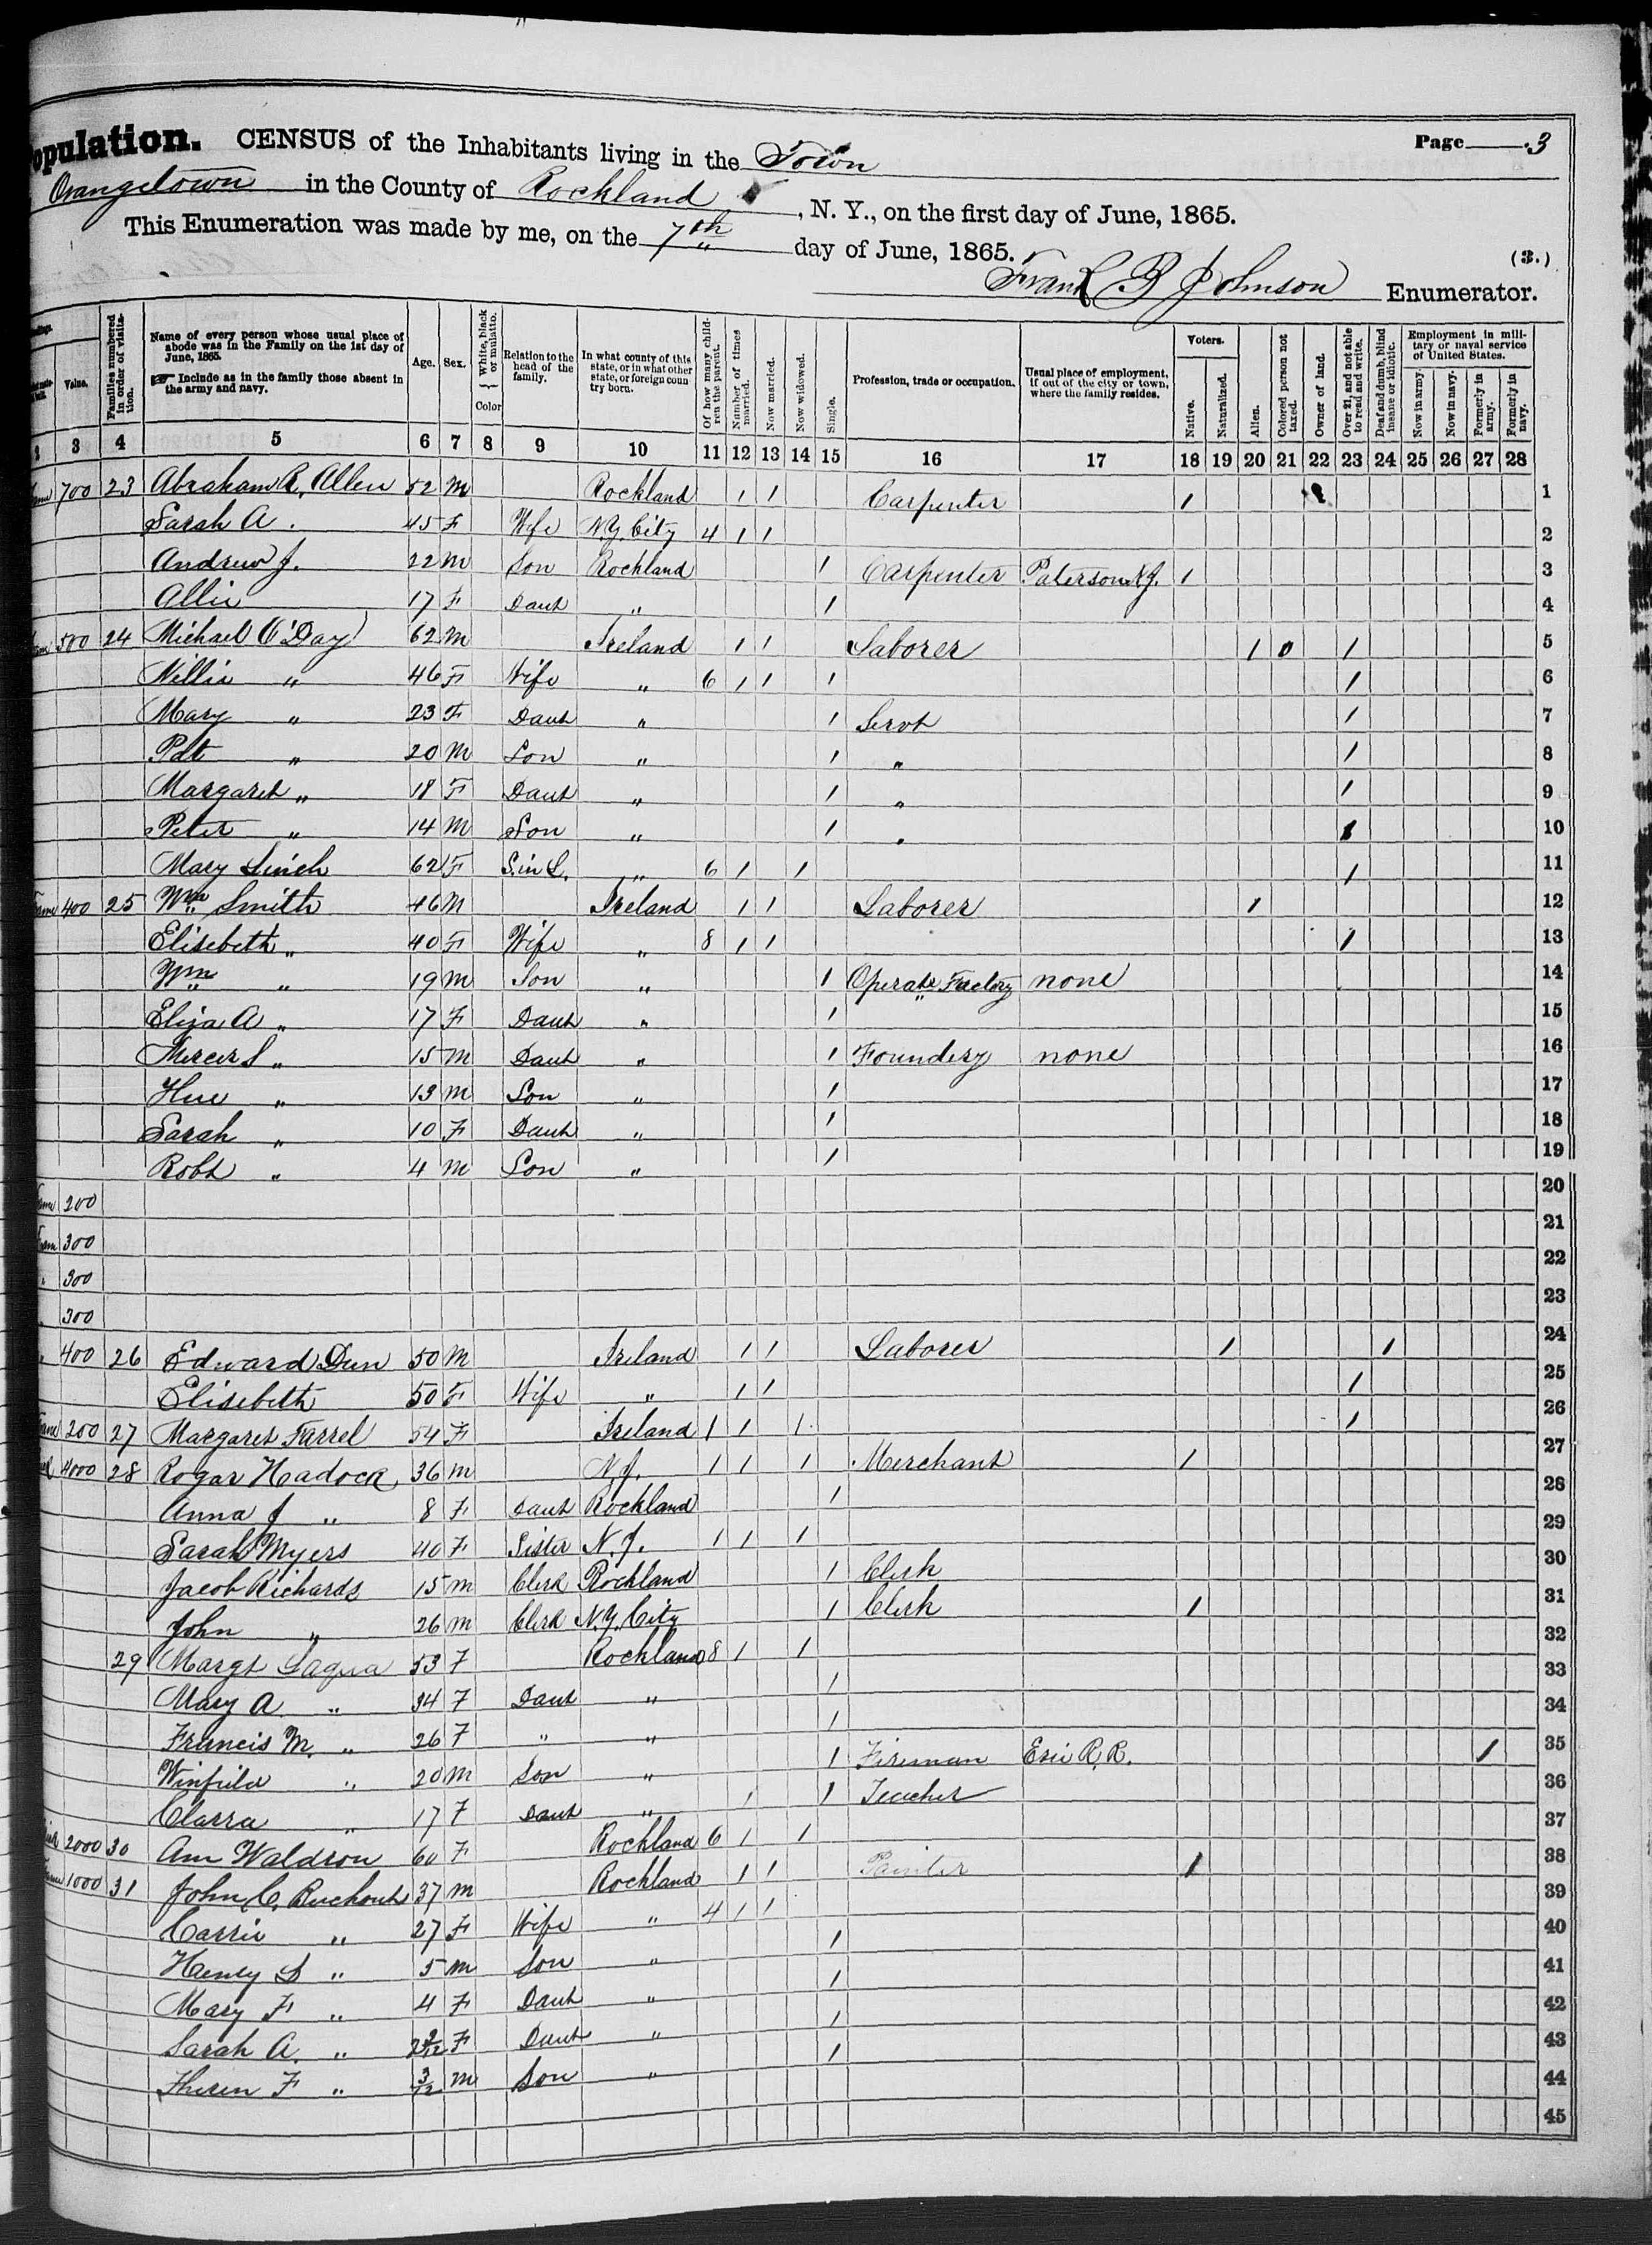 opulation. CENSUS of the Inhabitants living in the Town Page 3
Orangetown in the County of Rockland, N. Y., on the first day of June, 1865.
This Enumeration was made by me, on the 7th day of June, 1865. (3.)
Frank B Johnson Enumerator.
Value.
Families numbered in order of visitation.
Name of every person whose usual place of abode was in the Family on the 1st day of June, 1865.
Include as in the family those absent in the army and navy.
Age.
Sex.
White, black or mulatto. Color
Relation to the head of the family.
In what county of this state, or in what other state, or foreign country born.
Of how many children the parent.
Number of times married.
Now married.
Now widowed.
Single.
Profession, trade or occupation.
Usual place of employment, if out of the city or town, where the family resides.
Voters.
Native.
Naturalized.
Alien.
Colored person not taxed.
Owner of land.
Over 21, and not able to read and write.
Deaf and dumb, blind insane or idiotic.
Employment in military or naval service of United States.
Now in army.
Now in navy.
Formerly in army.
Formerly in navy.
2 3 4 5 6 7 8 9 10 11 12 13 14 15 16 17 18 19 20 21 22 23 24 25 26 27 28
700 23 Abraham R. Allen 52 M Rockland 1 1 Carpenter 1 1
Sarah A. 45 F Wife N.Y. City 4 1 1 2
Andrew J. 22 M Son Rockland 1 Carpenter Paterson N.J. 1 3
Allie 17 F Daut " 1 4
500 24 Michael O'Day 62 M Ireland 1 1 Laborer 1 0 1 5
Nillie " 46 F Wife " 6 1 1 1 1 6
Mary " 23 F Daut " 1 Servt 1 7
Pat " 20 M Son " 1 " 1 8
Margaret " 18 F Daut " 1 " 1 9
Peter " 14 M Son " 1 " 1 10
Mary Linch 62 F S. in L. " 6 1 1 1 11
400 25 Wm Smith 46 M Ireland 1 1 Laborer 1 12
Elisebeth " 40 F Wife " 8 1 1 1 13
Wm " 19 M Son " 1 Operate Factory none 14
Eliza A " 17 F Daut " 1 15
Mercer S " 15 M Daut " 1 Foundery none 16
Hue " 13 M Son " 1 17
Sarah " 10 F Daut " 1 18
Robt " 4 M Son " 1 19
200 20
300 21
" 300 22
" 300 23
" 400 26 Edward Dun 50 M Ireland 1 1 Laborer 1 1 24
Elisebeth 50 F Wife " 1 1 1 25
200 27 Margaret Farrel 54 F Ireland 1 1 1 1 26
4000 28 Rogar Hadock 36 M N.J. 1 1 1 Merchant 1 27
Anna J " 8 F Daut Rockland 1 28
Sarah Myers 40 F Sister N.J. 1 1 1 29
Jacob Richards 15 M Clerk Rockland 1 Clerk 30
John " 26 M Clerk N.Y. City 1 Clerk 1 31
29 Margt Lagua 53 F Rockland 8 1 1 32
Mary A. " 34 F Daut " 1 33
Francis M. " 26 F " " 1 34
Winfield " 20 M Son " 1 Fireman Erie R.R. 1 35
Clarra " 17 F Daut " 1 1 Teacher 36
2000 30 Ann Waldron 60 F Rockland 6 1 1 37
1000 31 John C. Ruckout 37 M Rockland 1 1 Painter 1 38
Carrie " 27 F Wife " 4 1 1 39
Henry D " 5 M Son " 1 40
Mary F " 4 F Daut " 1 41
Sarah A. " 2 2/12 F Daut " 1 42
Theren F " 3/12 M Son " 1 43
44
45